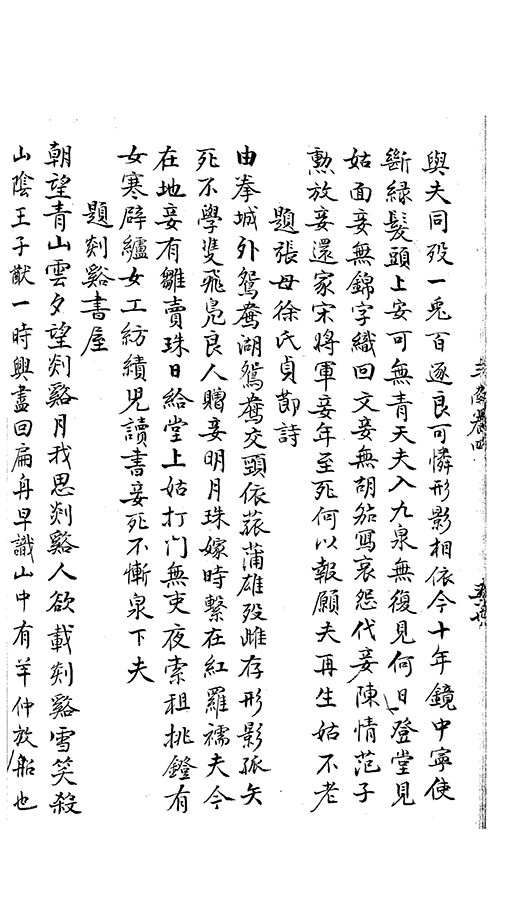 與夫同歿一兎百逐良可憐形影相依今十年鏡中寧使
斷緑髮頭上安可無青天夫入九泉無復見何日登堂見
姑面妾無錦字織回文妾無胡笳寫哀怨代妾陳情范子
勲放妾還家宋將軍妾年至死何以報願夫再生姑不老
題張母徐氏貞節詩
由拳城外鴛鴦湖鴛鴦交頸依菰蒲雄歿雌存形影孤矢
死不學雙飛鳬良人贈妾明月珠嫁時繫在紅羅襦夫今
在地妾有雛賣珠日給堂上姑打门無吏夜索租挑鐙有
女寒辟纑女工紡績児讀書妾死不慚泉下夫
題剡谿書屋
朝望青山雲夕望剡谿月我思剡谿人欲載剡谿雪笑殺
山陰王子猷一時興盡回扁舟早識山中有羊仲放船也